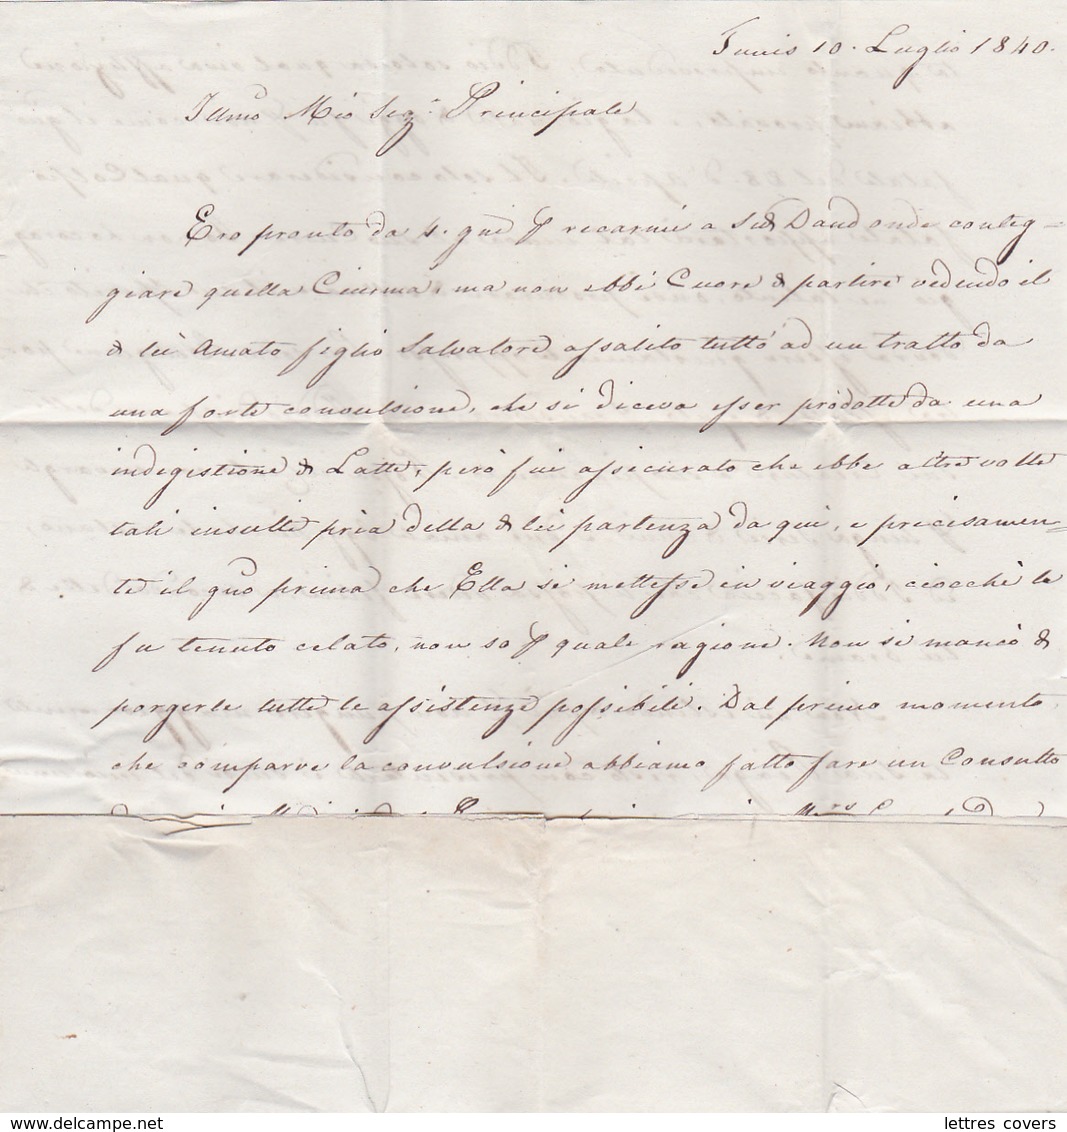 Tunis 10. Luglio 1840.
Illmo Mio Sigr. Principale
Ero pronto da 4. gni p recarmi a Sid Daud onde conteg=
giare quella Ciurma, ma non ebbi Cuore di partire vedendo il
di lei Amato figlio Salvatore assalito tutto ad un tratto da
una forte convulsione, che si diceva esser prodotte da una
indigistione di Latte, però fui assicurato che ebbe altre volte
tali insulti pria della di lei partenza da qui, e precisamen=
te il gno prima che Ella si mettesse in viaggio, ciocchè le
fu tenuto celato, non so p quale ragione. Non si mancò di
porgerle tutte le assistenze possibili. Dal primo momento
che comparve la convulsione abbiamo fatto fare un Consulto
delcampe.net
lettres covers